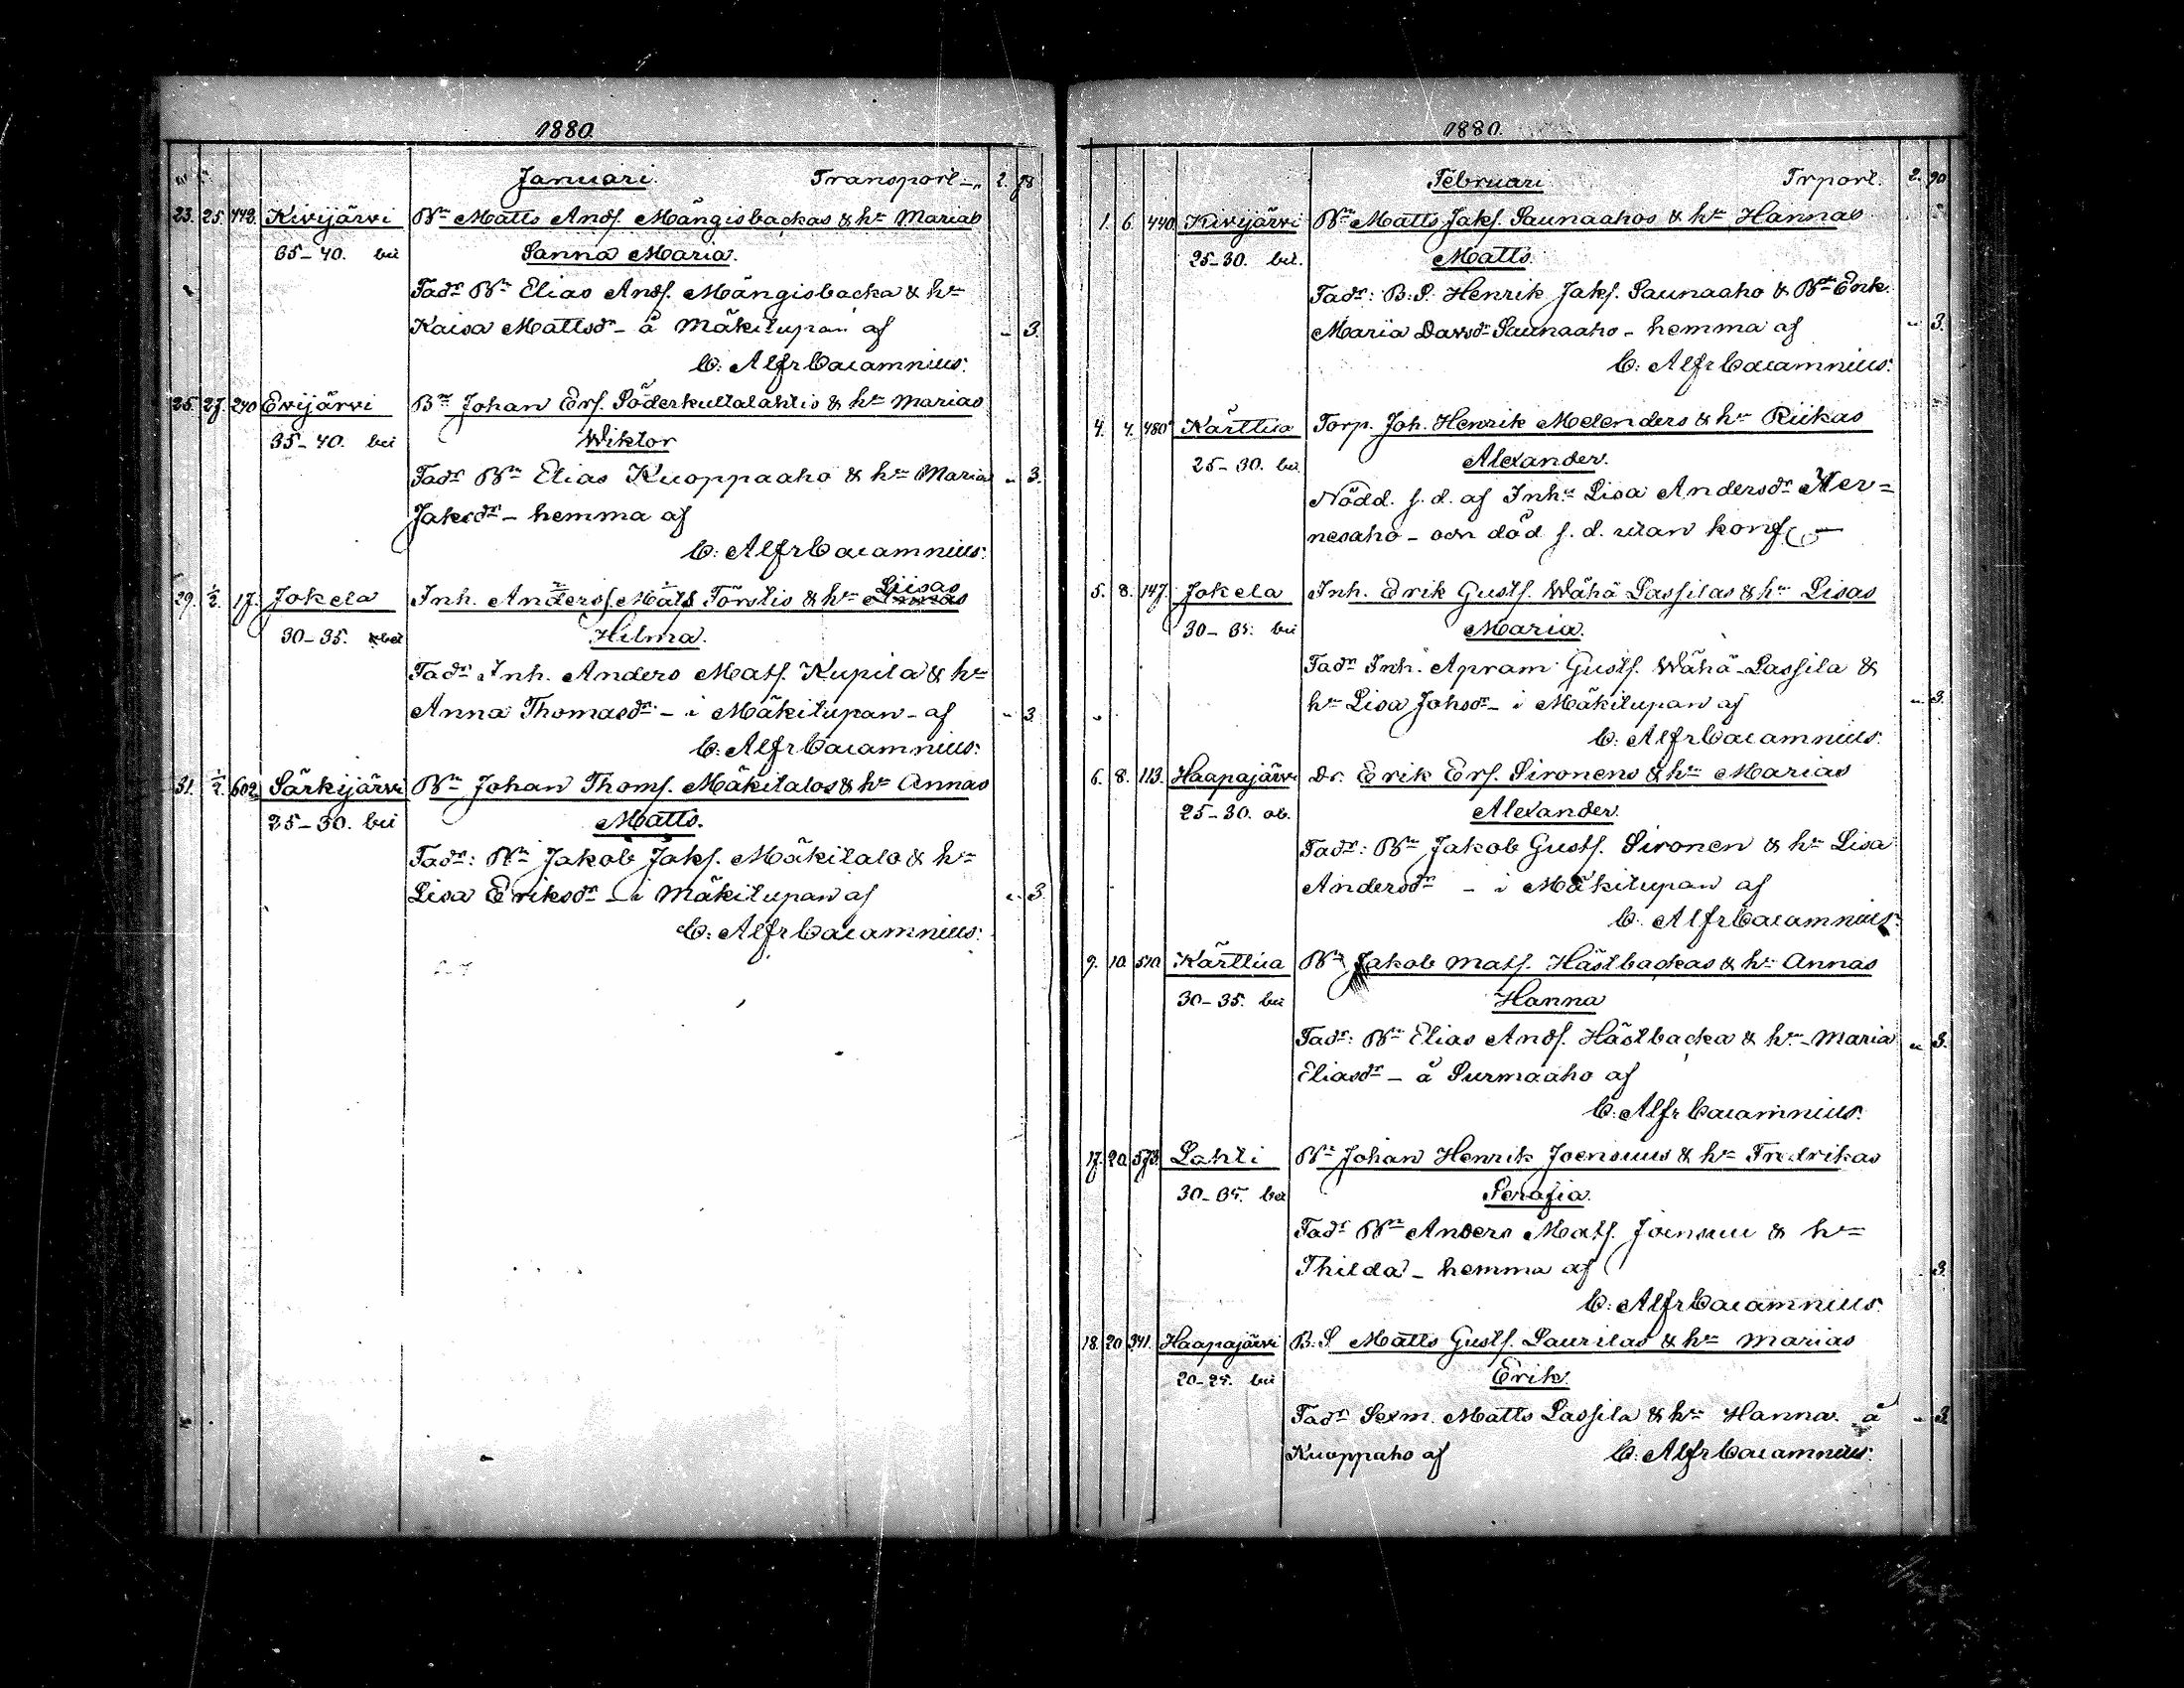 1880.
Januari. Transport „ 2. 78
23. 25. 442. Kivijärvi Bn Matts Ands. Mängisbackas & hn Marias
35-40. bei Sanna Maria.
Fadr Bn Elias Ands. Mängisbacka & hn
Kaisa Mattsdr - å Mäkitupan af „ 3.
C: Alfr Cacamnius:
25. 27. 240 Evijärvi Bn Johan Ers. Söderkultalahtis & hn Marias
35-40. bei Wiktor
Fadr Bn Elias Kuoppaaho & hn Maria „ 3.
Jaksdr - hemma af
C: Alfr Cacamnius:
Liisas
29. 1/2. 17. Jokela Inh. Anders. Mats Törstis & hn
30-35. bei Hilma.
Fadr Inh. Anders Mats. Kupila & hn
Anna Thomasdr - i Mäkitupan - af „ 3.
C: Alfr Cacamnius:
31. 1/2. 602. Särkijärvi Bn Johan Thoms. Mäkitalos & hn Annas
25-30. bei Matts.
Fadr: Bn Jakob Jaks. Mäkitalo & hn
Lisa Eriksdr - i Mäkitupan af „ 3.
C: Alfr Cacamnius:
1880.
Februari Trport. 2. 90
1. 6. 440. Kivijärvi Bn Matts Jaks. Saunaahos & hn Hannas
25-30. bei. Matts.
Fadr: B.S. Henrik Jaks. Saunaaho & Bn Enk.
Maria Davsdr Saunaaho - hemma af „ 3.
C: Alfr Cacamnius:
4. 4. 480 Kärttua Torp. Joh. Henrik Melenders & hn Riikas
25-30. bei Alexander.
Nödd. s. d. af Inh:n Lisa Andersdr Her=
nesaho - och död s. d. utan konf
5. 8. 147. Jokela Inh. Erik Gusts. Wähä Lassilas & hn Lisas
30-35. bei Maria.
Fadr Inh. Apram Gusts. Wähä-Lassila &
hn Lisa Johsdr - i Mäkitupan af „ 3.
C: Alfr Cacamnius:
6. 8. 113. Haapajärvi Dr. Erik Ers. Sironens & hn Marias
25-30. ob. Alexander.
Fadr: Bn Jakob Gusts. Sironen & hn Lisa
Andersdr - i Mäkitupan af
C: Alfr Cacamnius:
9. 10. 510. Kärttua Bn Jakob Mats. Hästbackas & hn Annas
30-35. bei Hanna
Fadr: Bn Elias Ands. Hästbacka & hn - Maria „ 3.
Eliasdr - å Surmaaho af
C: Alfr Cacamnius:
17. 20. 573. Lahti Bn Johan Henrik Joensuus & hn Fredrikas
30-35. bei Serafia.
Fadr Bn Anders Mats. Joensuu & hn
Thilda - hemma af 3.
C: Alfr Cacamnius:
18. 20 341. Haapajärvi B.S Matts Gusts. Laurilas & hn Marias
20-25. bei Erik.
Fadr Sexm. Matts Lassila & hn Hanna. å „ 3.
Kuoppaho af C: Alfr Cacamnius: